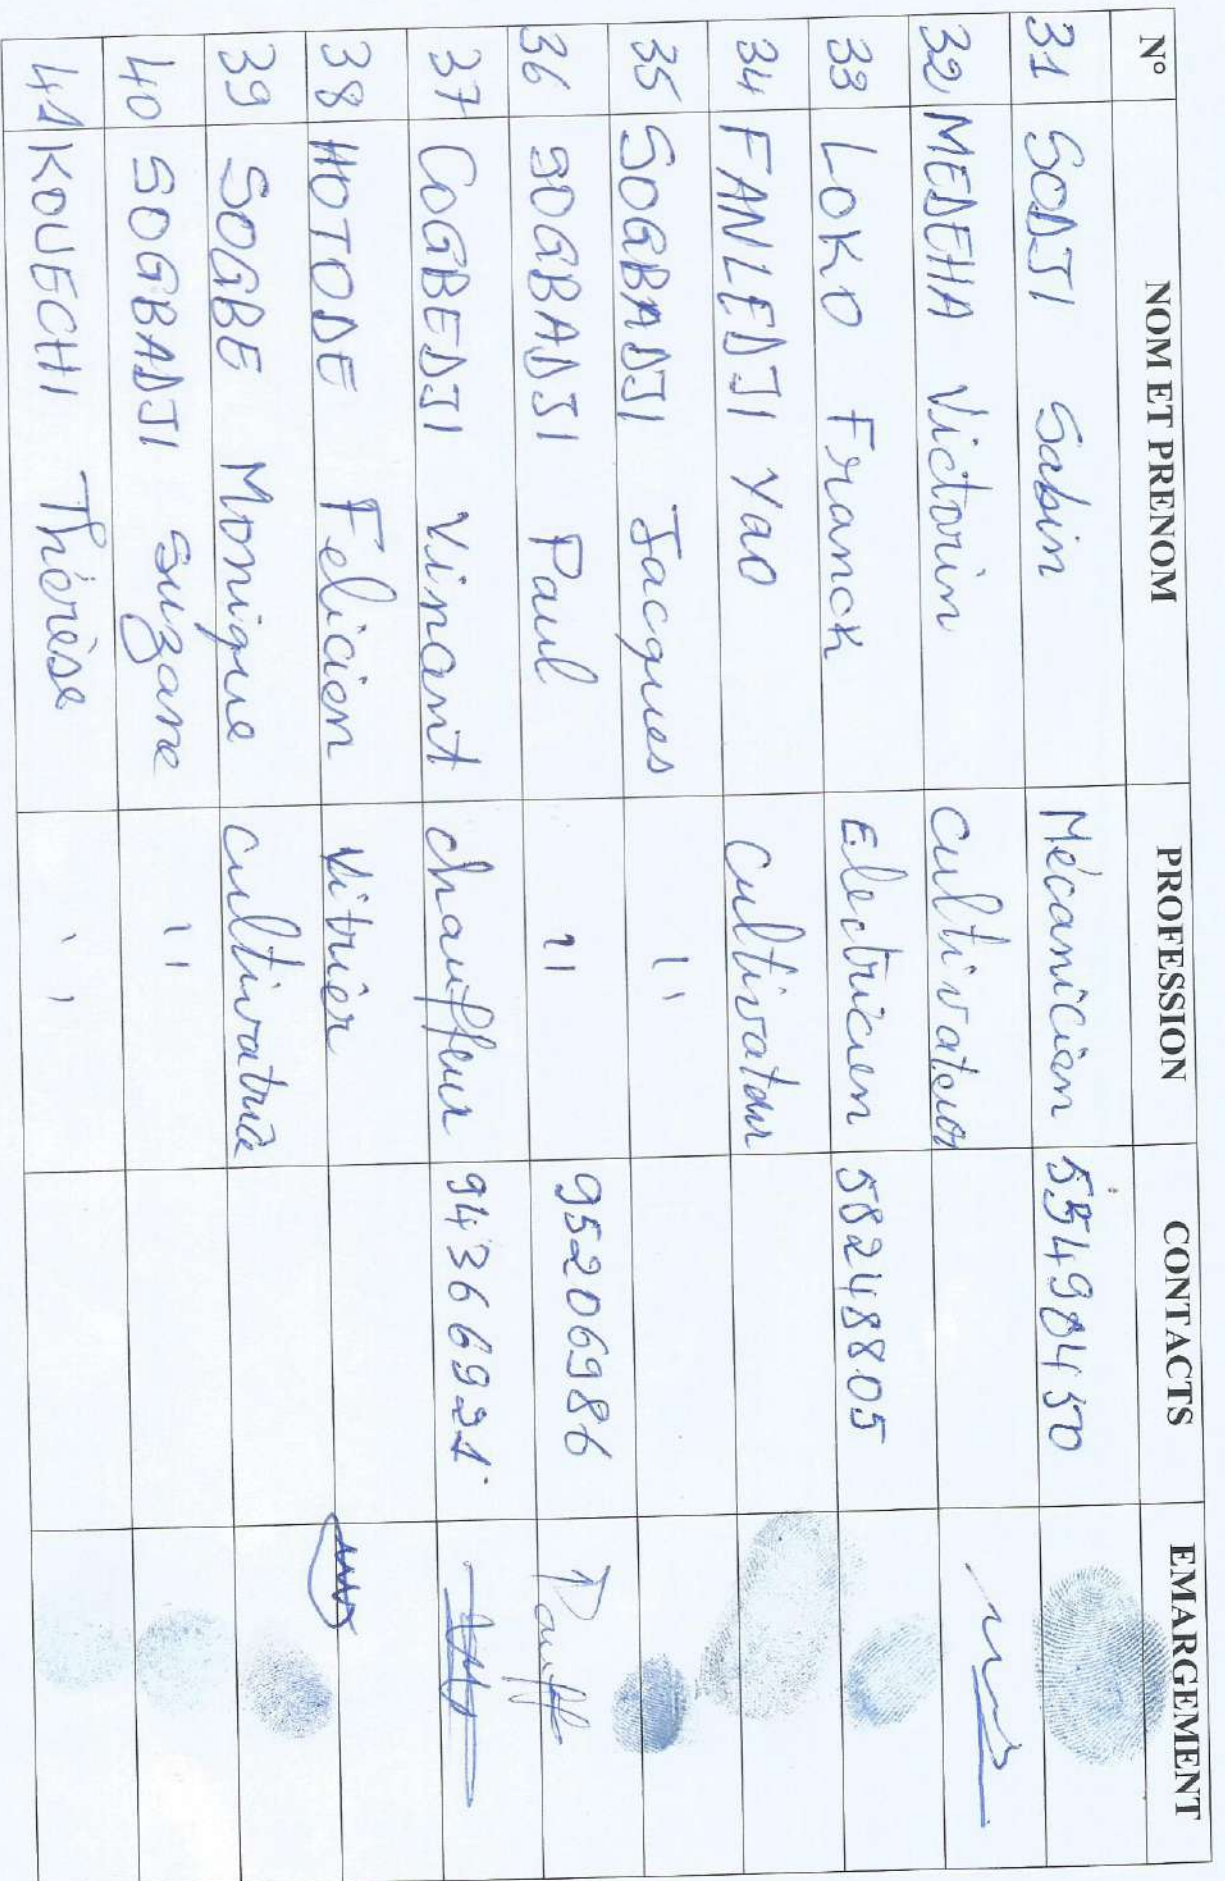 N° NOM ET PRENOM PROFESSION CONTACTS EMARGEMENT
31 SODJI Sabin Mécanicien 55498450
32 MEDEHA Victorin Cultivateur
33 LOKO Franck Electricien 58248805
34 FANLEDJI Yao Cultivateur
35 SOGBADJI Jacques "
36 SOGBADJI Paul " 95206986
37 COGBEDJI Vincent chauffeur 94366921
38 HOTODE Felicien Vitrier
39 SOGBE Monique Cultivatrice
40 SOGBADJI Suzane "
41 KOUECHI Thérèse "